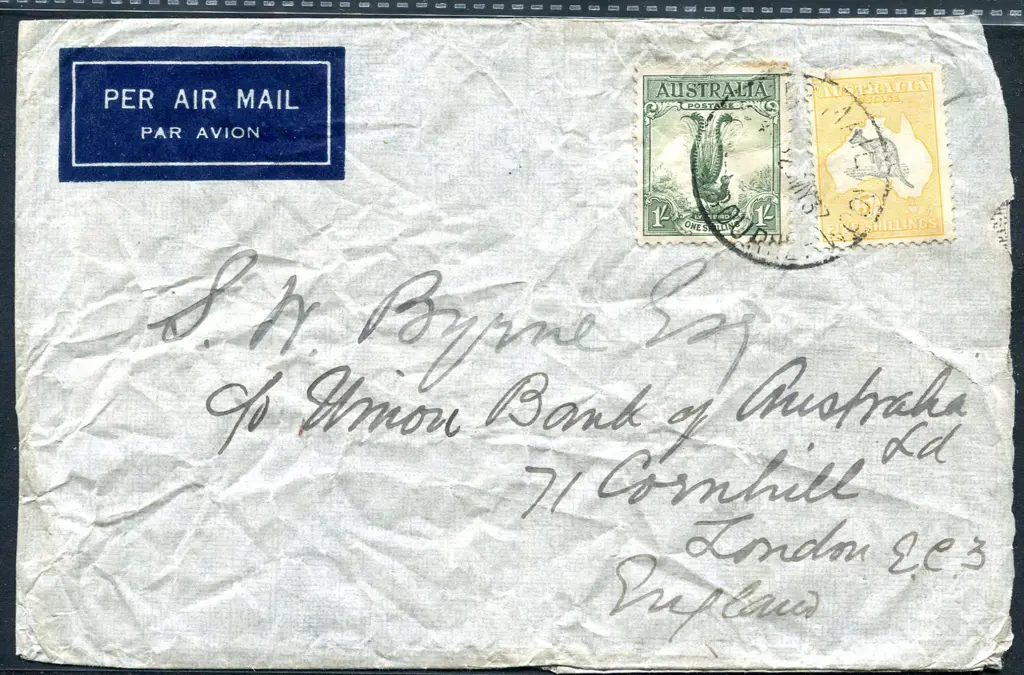 PER AIR MAIL
PAR AVION
AUSTRALIA
POSTAGE
1/- LYREBIRD 1/-
ONE SHILLING
AUSTRALIA
POSTAGE
SHILLINGS
S. W. Byrne Esq
c/o Union Bank of Australia
Ld
71 Cornhill
London E.C.3
England